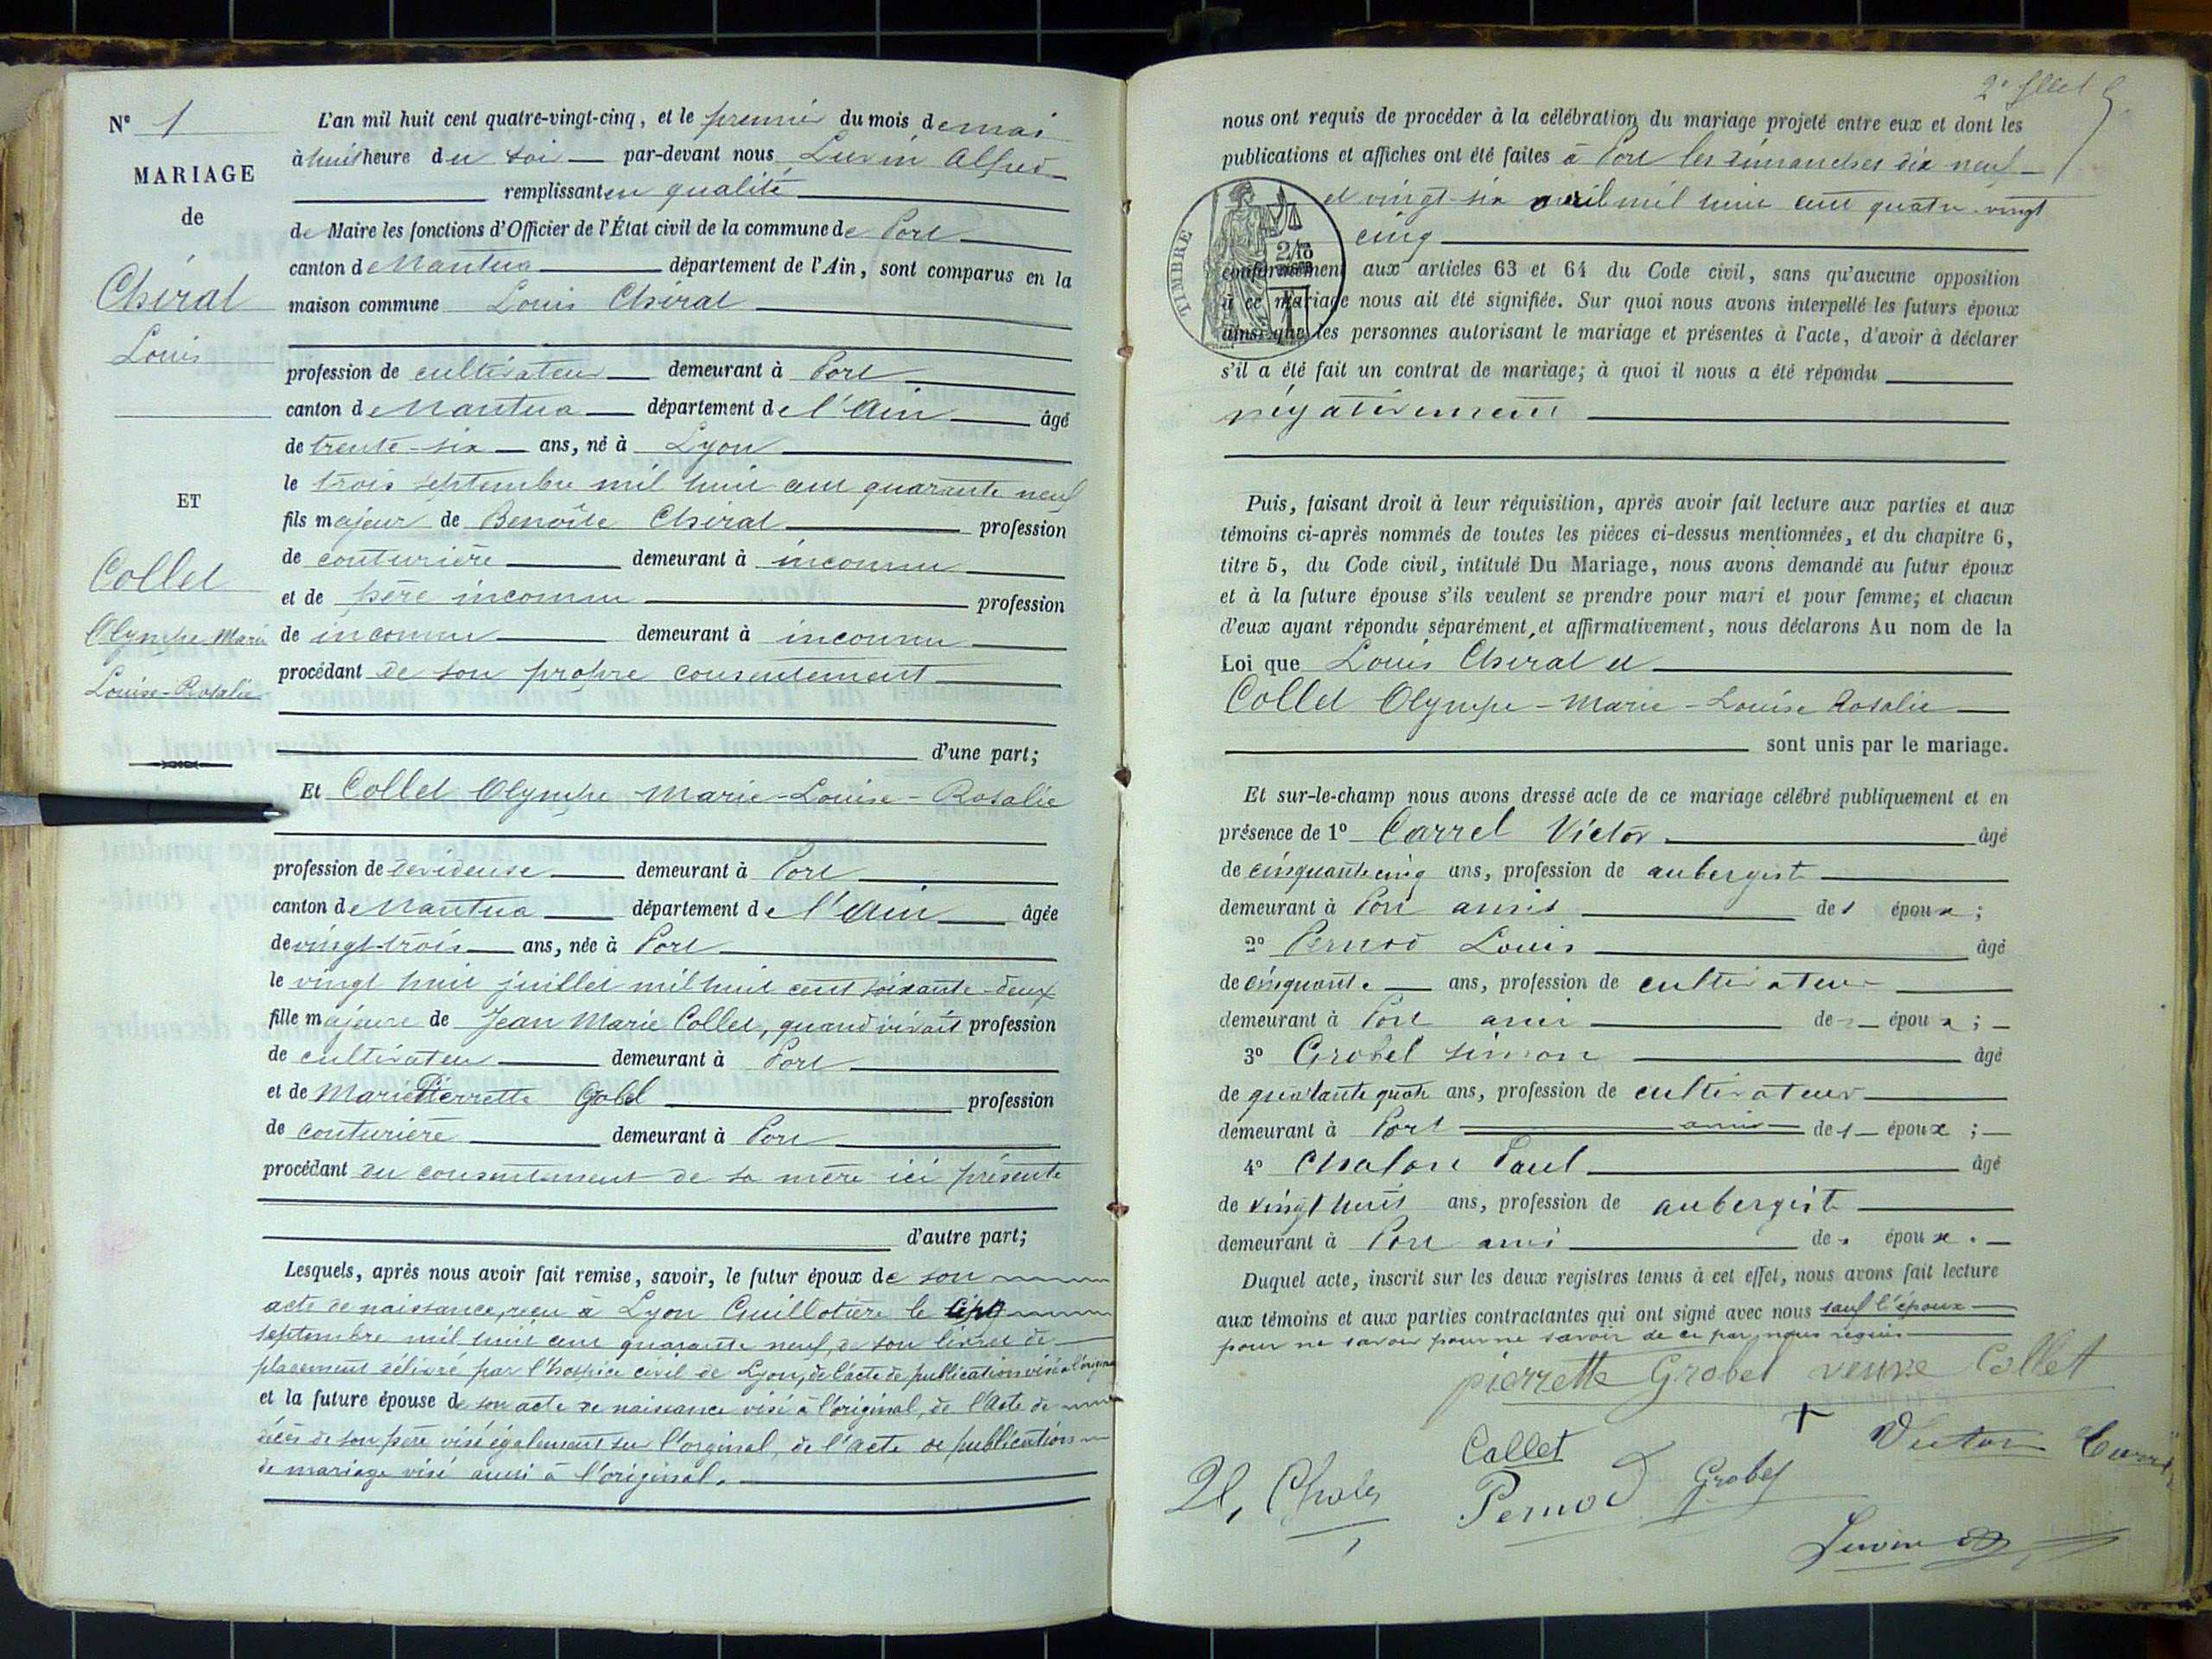 N° 1
MARIAGE
de
Chérat
Louis
ET
Collet
Olympe-Marie
Louise-Rosalie
L'an mil huit cent quatre-vingt-cinq, et le premier du mois de mai
à huit heure du soir par-devant nous Luvin Alfred
remplissant en qualité
de Maire les fonctions d'Officier de l'État civil de la commune de Port
canton de Nantua département de l'Ain, sont comparus en la
maison commune Louis Chérat
profession de cultivateur demeurant à Port
canton de Nantua département de l'Ain âgé
de trente-six ans, né à Lyon
le trois septembre mil huit cent quarante neuf
fils majeur de Benoîte Chérat profession
de couturière demeurant à inconnu
et de père inconnu profession
de inconnu demeurant à inconnu
procédant de son propre consentement
d'une part;
Et Collet Olympe Marie-Louise-Rosalie
profession de dévideuse demeurant à Port
canton de Nantua département de l'Ain âgée
de vingt-trois ans, née à Port
le vingt huit juillet mil huit cent soixante-deux
fille majeure de Jean Marie Collet, quand vivait profession
de cultivateur demeurant à Port
et de Marie Pierrette Gobel profession
de couturière demeurant à Port
procédant du consentement de sa mère ici présente
d'autre part;
Lesquels, après nous avoir fait remise, savoir, le futur époux de son
acte de naissance, reçu à Lyon Guillotière le cinq
septembre mil huit cent quarante neuf, de son livret de
placement délivré par l'hospice civil de Lyon, de l'acte de publication visé à l'original
et la future épouse de son acte de naissance visé à l'original, de l'acte de
décès de son père visé également sur l'orginal, de l'acte de publications
de mariage visé aussi à l'original.
2e fllet
nous ont requis de procéder à la célébration du mariage projeté entre eux et dont les
publications et affiches ont été faites à Port les dimanches dix neuf
et vingt-six avril mil huit cent quatre-vingt
cinq
TIMBRE
conformément aux articles 63 et 64 du Code civil, sans qu'aucune opposition
à ce mariage nous ait été signifiée. Sur quoi nous avons interpellé les futurs époux
ainsi que les personnes autorisant le mariage et présentes à l'acte, d'avoir à déclarer
s'il a été fait un contrat de mariage; à quoi il nous a été répondu
négativement
Puis, faisant droit à leur réquisition, après avoir fait lecture aux parties et aux
témoins ci-après nommés de toutes les pièces ci-dessus mentionnées, et du chapitre 6,
titre 5, du Code civil, intitulé Du Mariage, nous avons demandé au futur époux
et à la future épouse s'ils veulent se prendre pour mari et pour femme; et chacun
d'eux ayant répondu séparément et affirmativement, nous déclarons Au nom de la
Loi que Louis Cherat et
Collet Olympe-Marie-Louise Rosalie
sont unis par le mariage.
Et sur-le-champ nous avons dressé acte de ce mariage célébré publiquement et en
présence de 1° Carrel Victor âgé
de cinquante cinq ans, profession de aubergiste
demeurant à Port amis des époux;
2° Pernod Louis âgé
de cinquante ans, profession de cultivateur
demeurant à Port ami des époux;
3° Grobel Simon âgé
de quarante quatre ans, profession de cultivateur
demeurant à Port amis des époux;
4° Chalon Paul âgé
de vingt huit ans, profession de aubergiste
demeurant à Port ami des époux.
Duquel acte, inscrit sur les deux registres tenus à cet effet, nous avons fait lecture
aux témoins et aux parties contractantes qui ont signé avec nous sauf l'époux
pour ne savoir pour ne savoir de ce par nous requis
pierrette Grobel veuve Collet
Collet
Victor
Pernod
Grobel
Luvin